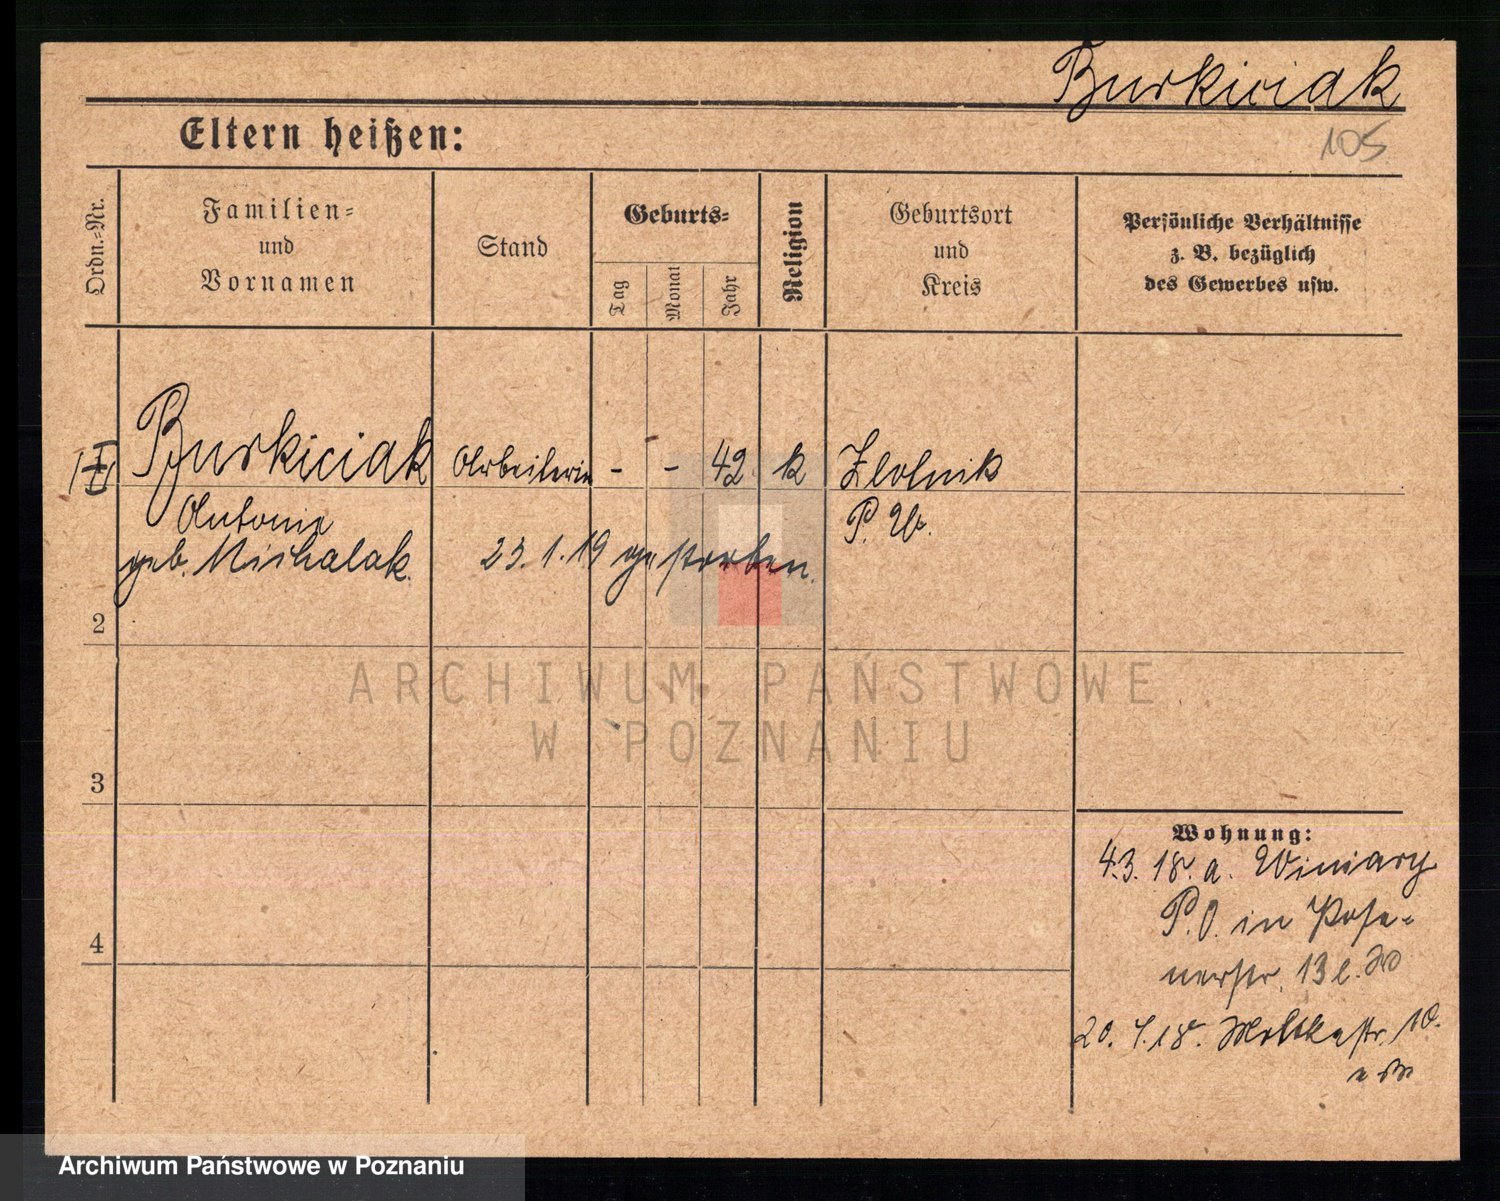 Burkiciak
105
Eltern heißen:
Ordn.-Nr.
Familien-
und
Vornamen
Stand
Geburts-
Tag
Monat
Jahr
Religion
Geburtsort
und
Kreis
Persönliche Verhältnisse
z. B. bezüglich
des Gewerbes usw.
Burkiciak Arbeiterin - - 42 k Zlotnik
Antonie P. W.
geb. Michalak 23.1.19 gestorben.
2
3
4
Wohnung:
4.3.18. a. Winiary
P.O. in Pose-
nerstr. 13 l.
20.4.18. Moltkestr. 10.
ARCHIWUM PAŃSTWOWE
W POZNANIU
Archiwum Państwowe w Poznaniu